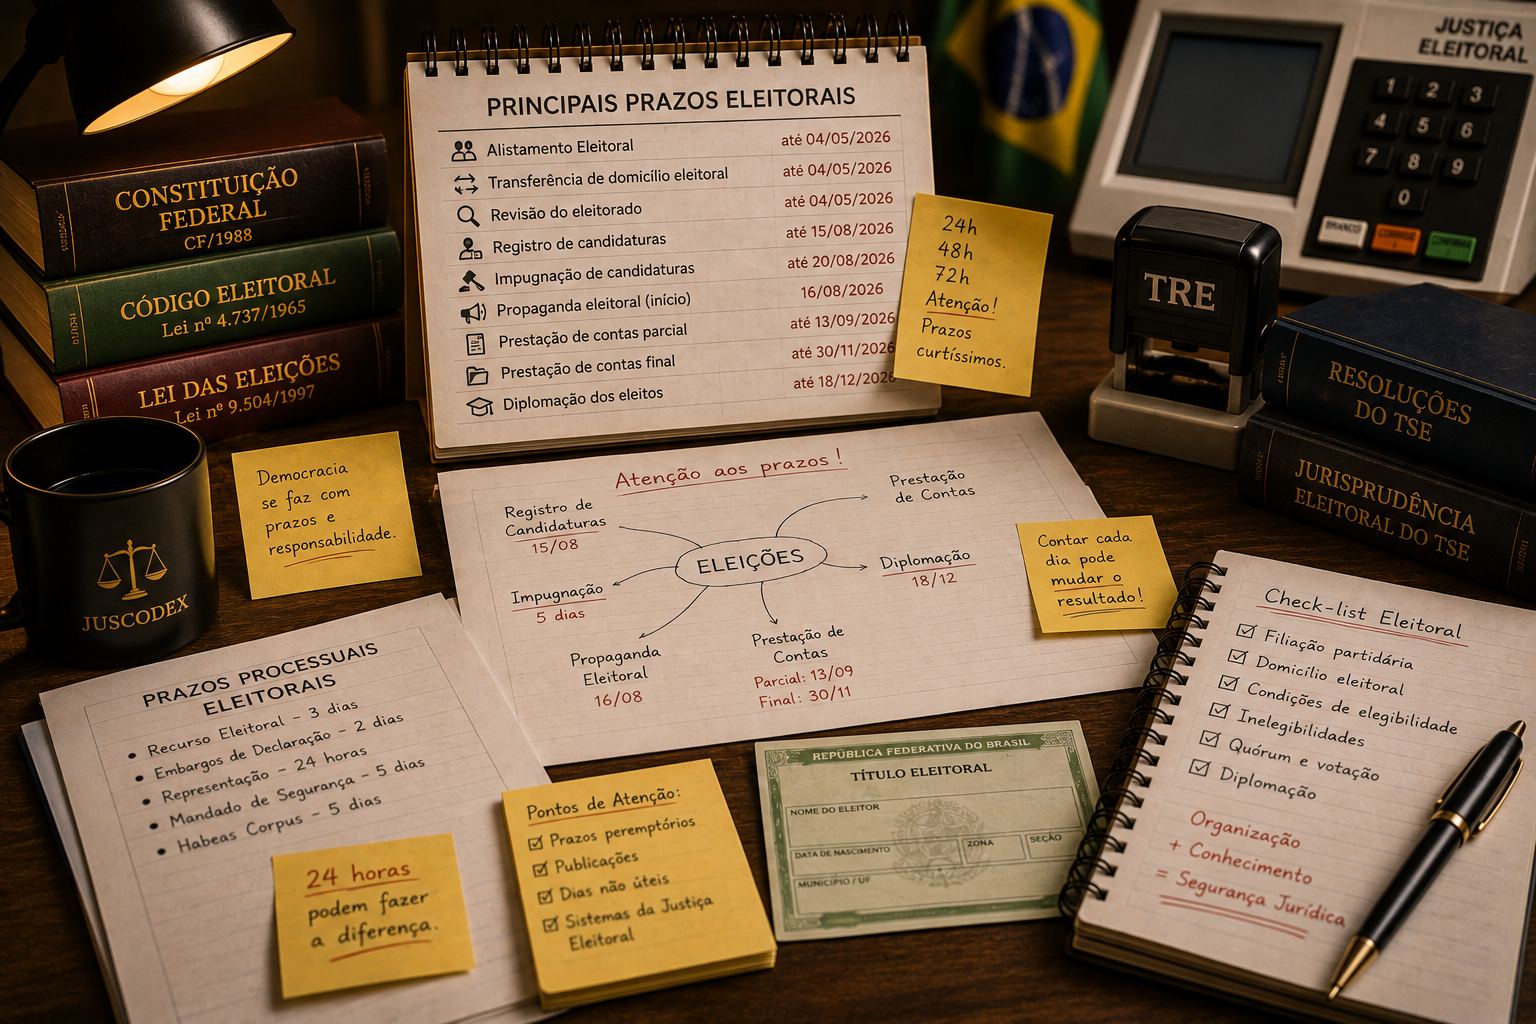 CONSTITUIÇÃO
FEDERAL
CF/1988
CÓDIGO ELEITORAL
Lei nº 4.737/1965
LEI DAS ELEIÇÕES
Lei nº 9.504/1997
PRINCIPAIS PRAZOS ELEITORAIS
Alistamento Eleitoral até 04/05/2026
Transferência de domicílio eleitoral até 04/05/2026
Revisão do eleitorado até 04/05/2026
Registro de candidaturas até 15/08/2026
Impugnação de candidaturas até 20/08/2026
Propaganda eleitoral (início) 16/08/2026
Prestação de contas parcial até 13/09/2026
Prestação de contas final até 30/11/2026
Diplomação dos eleitos até 18/12/2026
24h
48h
72h
Atenção!
Prazos
curtíssimos.
JUSTIÇA
ELEITORAL
1 2 3
4 5 6
7 8 9
0
BRANCO CORRIGE CONFIRMA
TRE
RESOLUÇÕES
DO TSE
JURISPRUDÊNCIA
ELEITORAL DO TSE
JUSCODEX
Democracia
se faz com
prazos e
responsabilidade.
Atenção aos prazos!
Registro de
Candidaturas
15/08
Impugnação
5 dias
Propaganda
Eleitoral
16/08
ELEIÇÕES
Prestação
de Contas
Diplomação
18/12
Prestação de
Contas
Parcial: 13/09
Final: 30/11
Contar cada
dia pode
mudar o
resultado!
PRAZOS PROCESSUAIS
ELEITORAIS
• Recurso Eleitoral – 3 dias
• Embargos de Declaração – 2 dias
• Representação – 24 horas
• Mandado de Segurança – 5 dias
• Habeas Corpus – 5 dias
24 horas
podem fazer
a diferença.
Pontos de Atenção:
Prazos peremptórios
Publicações
Dias não úteis
Sistemas da Justiça
Eleitoral
REPÚBLICA FEDERATIVA DO BRASIL
TÍTULO ELEITORAL
NOME DO ELEITOR
DATA DE NASCIMENTO ZONA SEÇÃO
MUNICÍPIO / UF
Check-list Eleitoral
Filiação partidária
Domicílio eleitoral
Condições de elegibilidade
Inelegibilidades
Quórum e votação
Diplomação
Organização
+ Conhecimento
= Segurança Jurídica